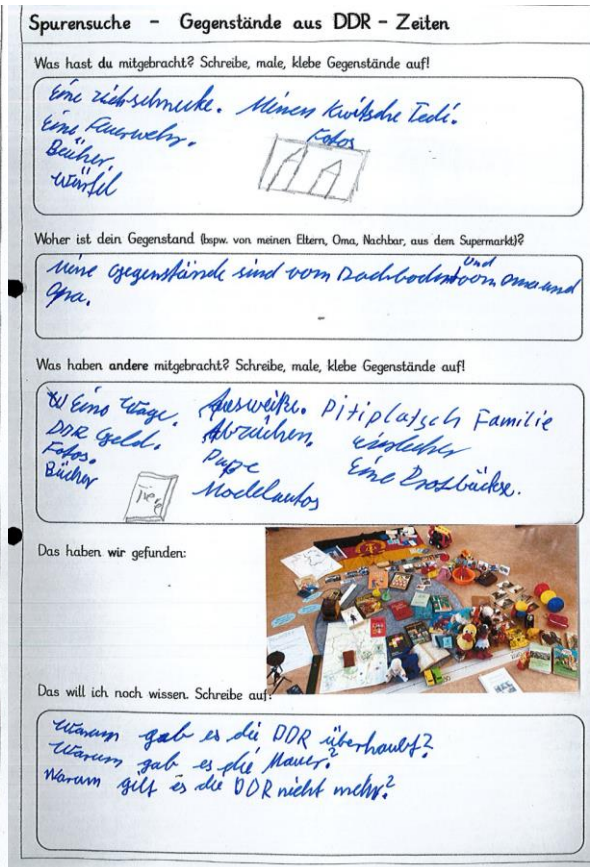 Spurensuche – Gegenstände aus DDR – Zeiten
Was hast du mitgebracht? Schreibe, male, klebe Gegenstände auf!
Eine ziehschnecke. Meinen Kwitsche Tedi.
Eine Feuerwehr. Fotos
Bücher.
Würfel
Woher ist dein Gegenstand (bspw. von meinen Eltern, Oma, Nachbar, aus dem Supermarkt)?
Meine gegenstände sind vom Dachboden und vom oma und
Opa.
Was haben andere mitgebracht? Schreibe, male, klebe Gegenstände auf!
Eine Wage. Ausweiße. Pitiplatsch Familie
DDR Geld. Abzeichen.
Fotos. Pupe Eine Brotbückse.
Bücher Modelautos
Tiere
Das haben wir gefunden:
Das will ich noch wissen. Schreibe auf:
Warum gab es die DDR überhaubt?
Warum gab es die Mauer?
Warum gilt es die DDR nicht mehr?